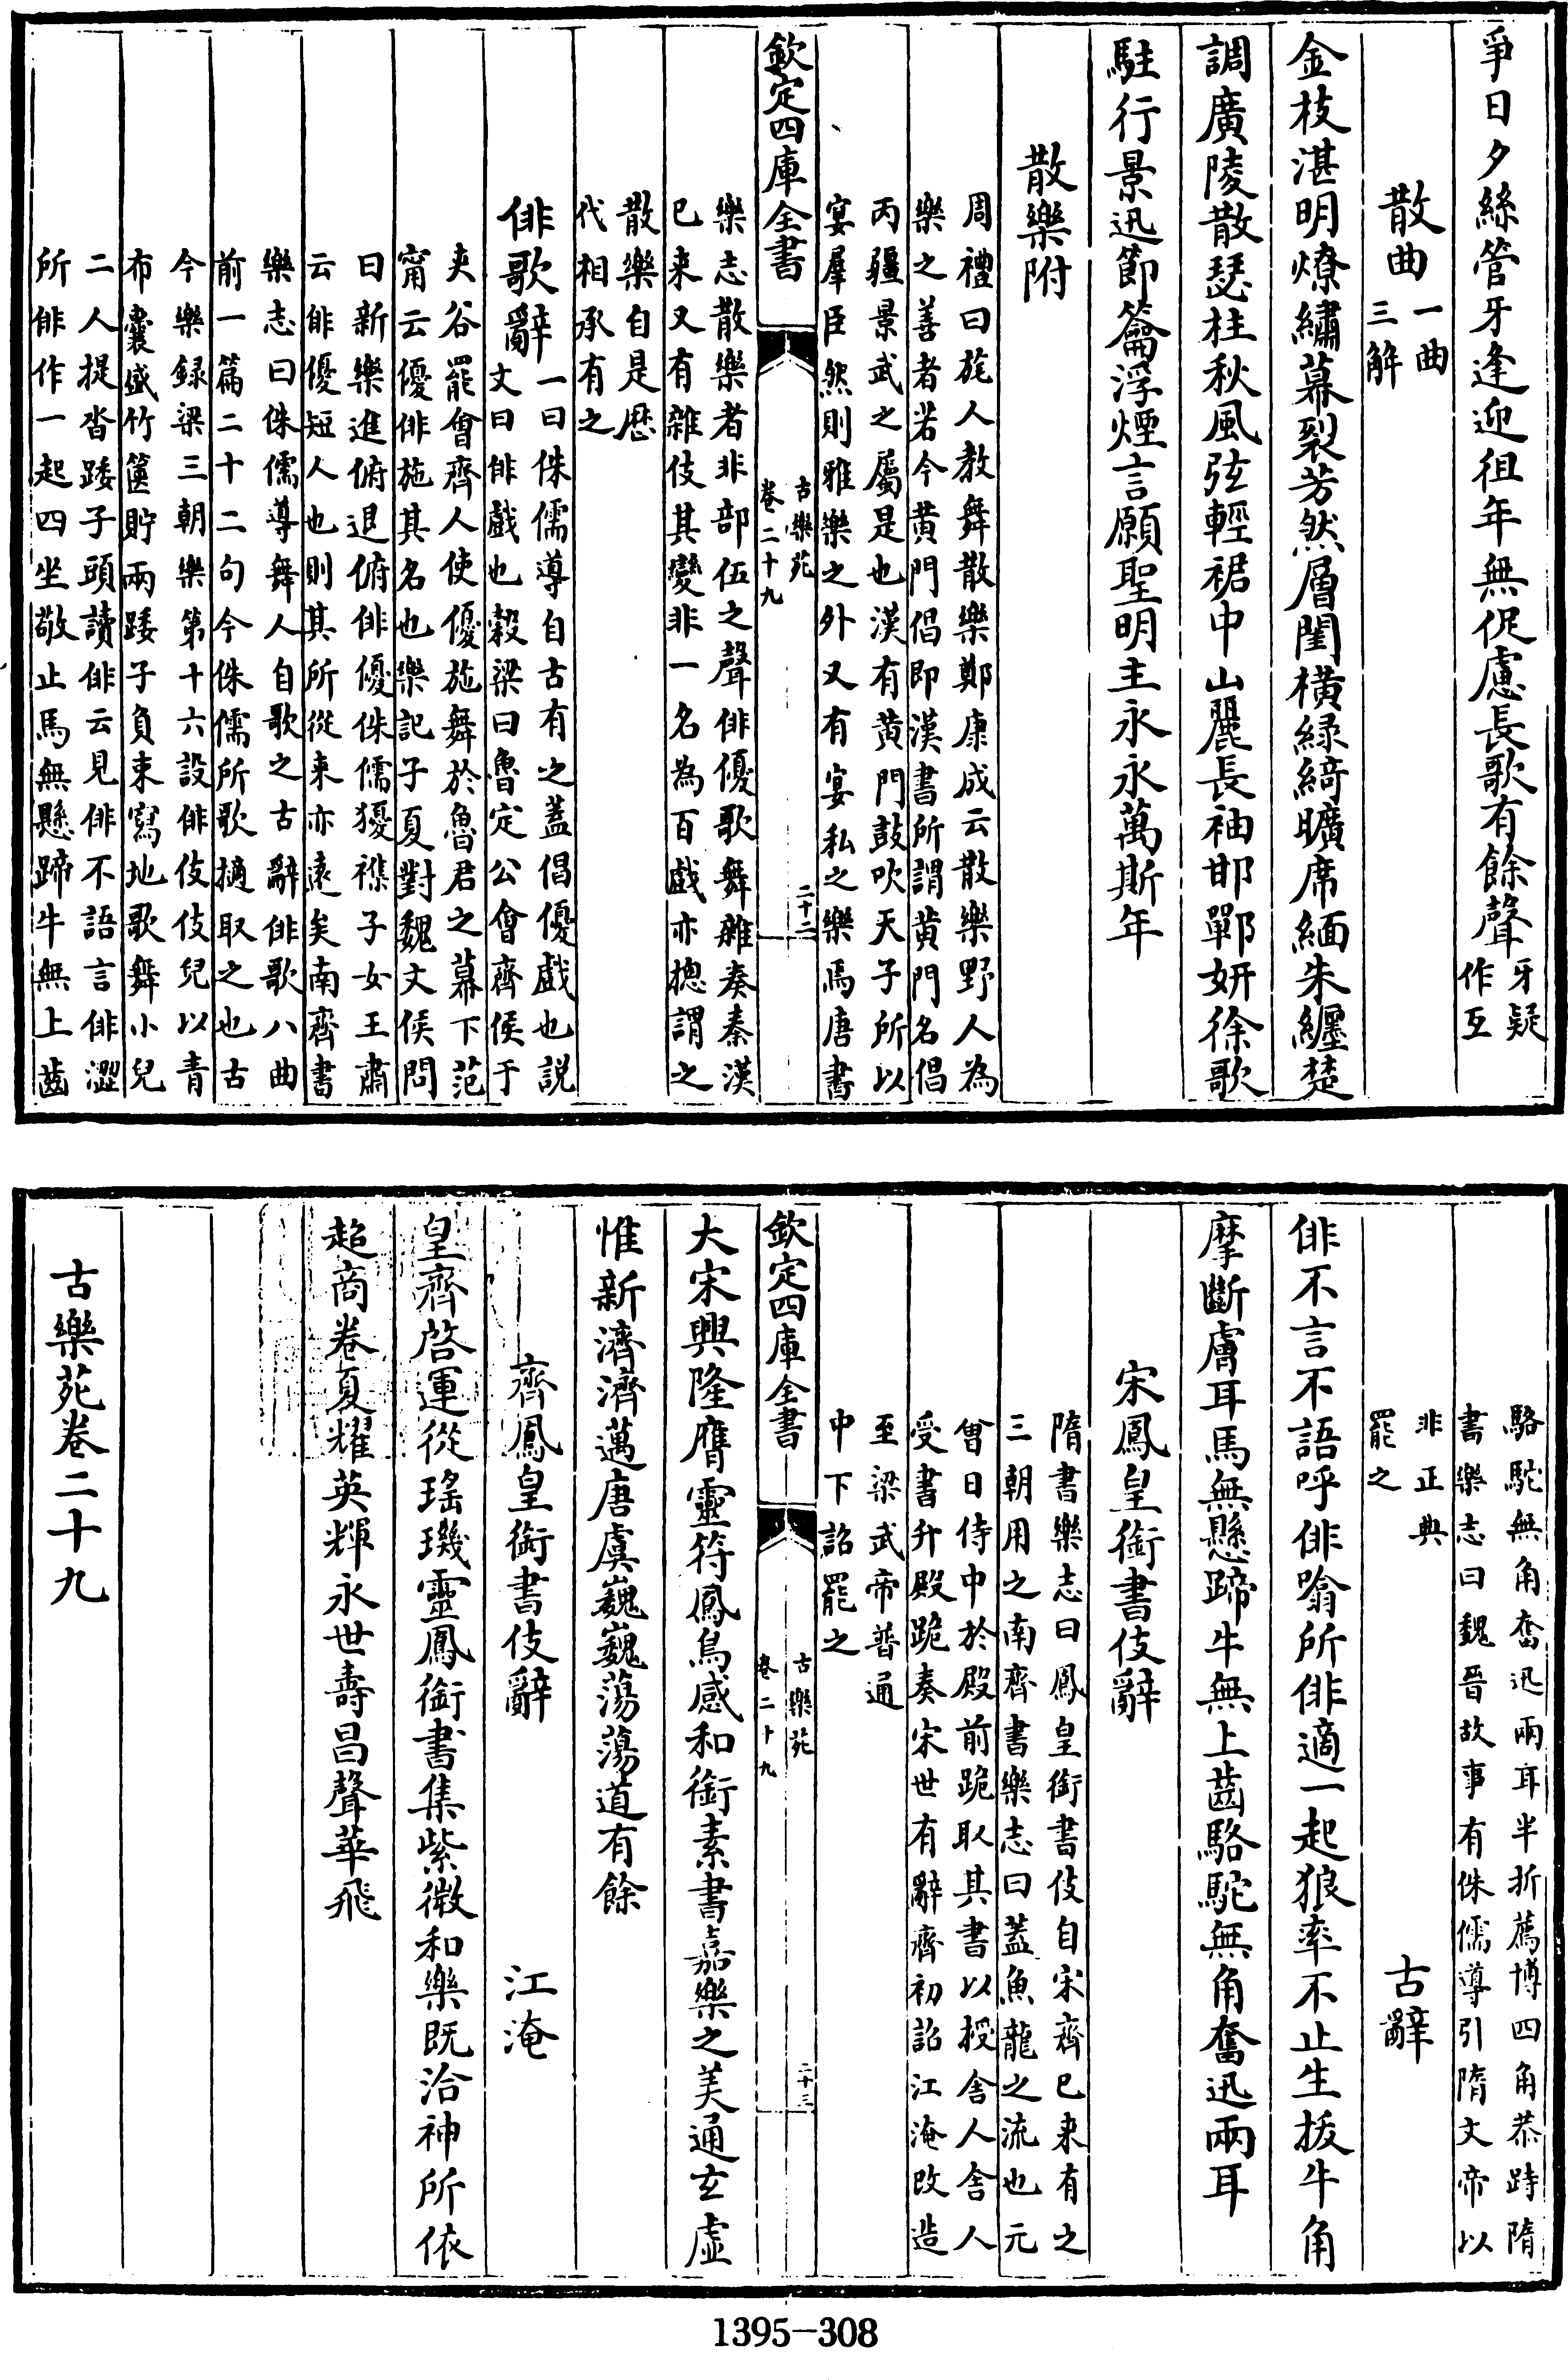 爭日夕絲管牙逢迎徂年無促慮長歌有餘聲牙疑
作互
散曲一曲
三解
金枝湛明燎繡幕裂芳然層閨橫緑綺曠席緬朱纏楚
調廣陵散瑟柱秋風弦輕裾中山麗長袖邯鄲妍徐歌
駐行景迅節籥浮煙言願聖明主永永萬斯年
散樂附
周禮曰旄人教舞散樂鄭康成云散樂野人為
樂之善者若今黄門倡即漢書所謂黄門名倡
丙疆景武之屬是也漢有黄門鼓吹天子所以
宴羣臣然則雅樂之外又有宴私之樂焉唐書
欽定四庫全書
古樂苑
卷二十九
二十二
樂志散樂者非部伍之聲俳優歌舞雜奏秦漢
已来又有雜伎其變非一名為百戯亦摠謂之
散樂自是歴
代相承有之
俳歌辭一曰侏儒導自古有之蓋倡優戲也説
文曰俳戲也榖梁曰魯定公會齊侯于
夾谷罷會齊人使優施舞於魯君之幕下范
甯云優俳施其名也樂記子夏對魏文侯問
曰新樂進俯退俯俳優侏儒獶襍子女王肅
云俳優短人也則其所從来亦逺矣南齊書
樂志曰侏儒導舞人自歌之古辭俳歌八曲
前一篇二十二句今侏儒所歌擿取之也古
今樂録梁三朝樂第十六設俳伎伎兒以青
布囊盛竹篋貯兩踒子負束寫地歌舞小兒
二人提沓踒子頭讀俳云見俳不語言俳澀
所俳作一起四坐敬止馬無懸蹄牛無上齒
駱駝無角奮迅兩耳半折薦博四角恭跱隋
書樂志曰魏晉故事有侏儒導引隋文帝以
非正典
罷之
古辭
俳不言不語呼俳噏所俳適一起狼率不止生拔牛角
摩斷膚耳馬無懸蹄牛無上齒駱駝無角奮迅兩耳
宋鳳皇銜書伎辭
隋書樂志曰鳳皇銜書伎自宋齊已来有之
三朝用之南齊書樂志曰蓋魚龍之流也元
㑹日侍中於殿前跪取其書以授舍人舍人
受書升殿跪奏宋世有辭齊初詔江淹改造
至梁武帝普通
中下詔罷之
欽定四庫全書
古樂苑
卷二十九
二十三
大宋興隆膺靈符鳳鳥感和銜素書嘉樂之美通玄虛
惟新濟濟邁唐虞巍巍蕩蕩道有餘
齊鳳皇銜書伎辭 江淹
皇齊啓運從瑤璣靈鳳銜書集紫微和樂既洽神所依
超商卷夏耀英輝永世壽昌聲華飛
古樂苑卷二十九
1395-308